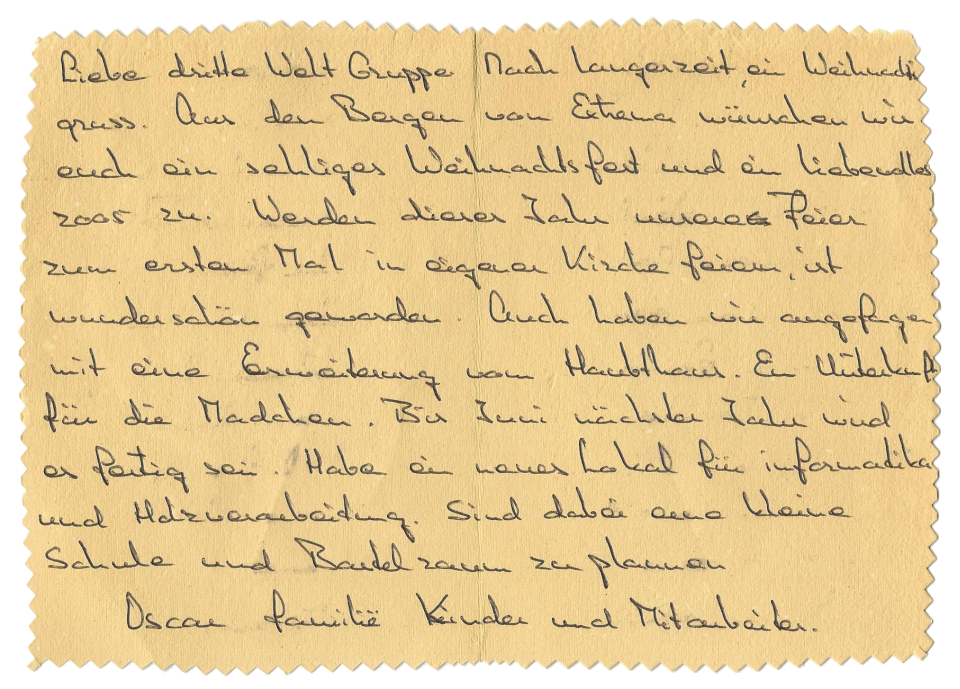 Liebe dritte Welt Gruppe Nach langerzeit, ein Weihnachts
gruss. Aus den Bergen von Extrema wünschen wir
euch ein sehliges Weihnachtsfest und ein liebevolles
2005 zu. Werden dieses Jahr unsere Feier
zum ersten Mal in eigener Kirche feiern, ist
wunderschön geworden. Auch haben wir angefangen
mit eine Erweiterung vom Haubthaus. Ein Unterkunft
für die Madchen. Bis Juni nächster Jahr wird
es fertig sein. Habe ein neues Lokal für informatika
und Holzverarbeitung. Sind dabei eine kleine
Schule und Bastelraum zu plannen
Oscar familië Kinder und Mitarbeiter.